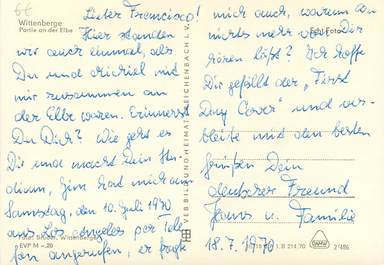 6t
Wittenberge
Partie an der Elbe
Lieber Francisco!
Hier standen
wir auch einmal, als
Du und Michiel mit
mir zusammen an
der Elbe waren. Erinnerst
Du Dich? Wie geht es
Dir und macht Dein Stu-
dium, Jim hat mich am
Samstag, den 10. Juli 1970
aus Los Angeles per Tele-
fon angerufen, er fragte
EVP M –.20
VEB BILD UND HEIMAT REICHENBACH I. V.
mich auch, warum Du
nichts mehr von Dir
Echt Foto
hören läßt? Ich hoffe
Dir gefällt der „First
Day Cover" und ver-
bleibe mit den besten
Grüßen Dein
deutscher Freund
Hans u. Familie
18.7.1970
214.70
2/486